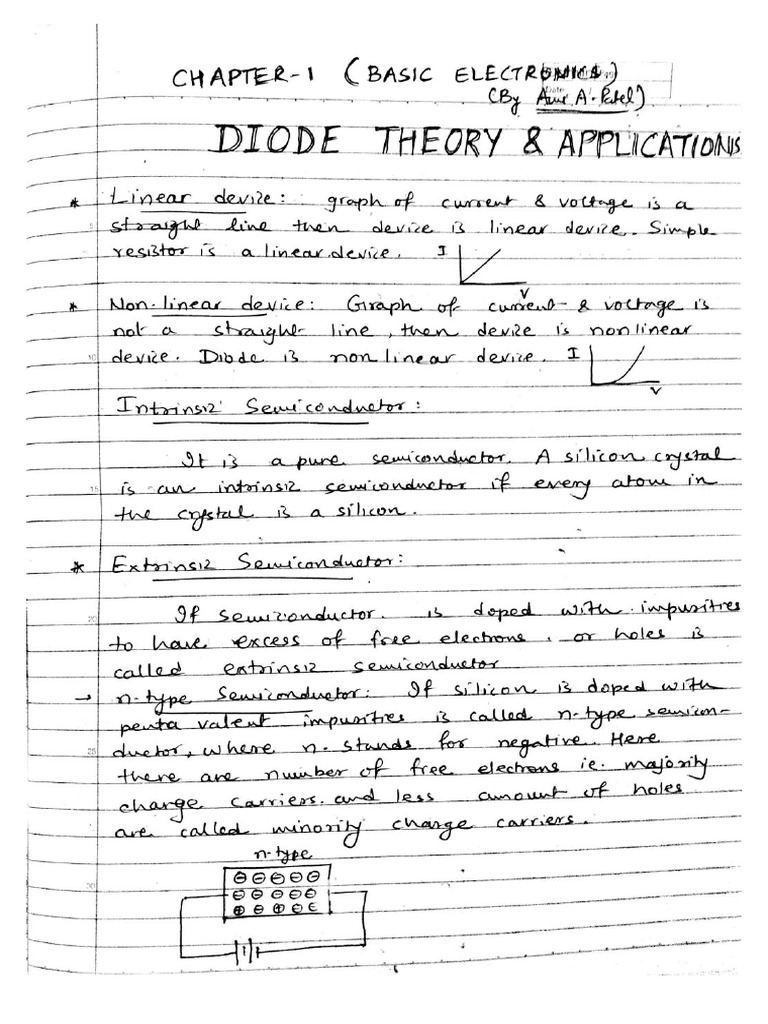 CHAPTER-1 (BASIC ELECTRONICS)
(By A. Patel)
DIODE THEORY & APPLICATIONS
* Linear device: graph of current & voltage is a
straight line then device is linear device. Simple
resistor is a linear device. I
V
* Non-linear device: Graph of current & voltage is
not a straight line, then device is nonlinear
10 device. Diode is non linear device. I
V
Intrinsic Semiconductor:
It is a pure semiconductor. A silicon crystal
15 is an intrinsic semiconductor if every atom in
the crystal is a silicon.
* Extrinsic Semiconductor:
20 If semiconductor is doped with impurities
to have excess of free electrons. or holes is
called extrinsic semiconductor
→ n-type Semiconductor: If silicon is doped with
penta valent impurities is called n-type semicon-
25 ductor, where n- stands for negative. Here
there are number of free electrons ie. majority
charge carriers. and less amount of holes
are called minority charge carriers.
n-type
30